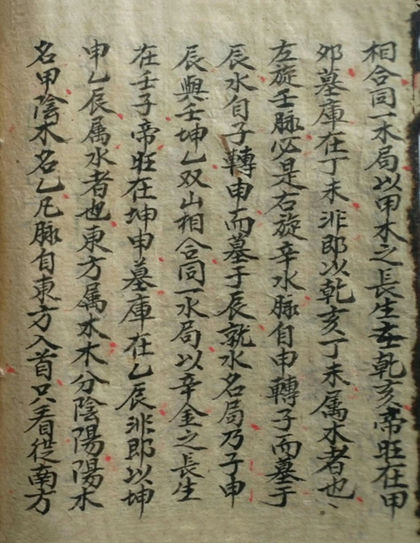 相合同一木局以甲木之長生在乾亥帝旺在甲
夘墓庫在丁未非即以乾亥丁未属木者也
左旋壬脉必是右旋辛水脉自申轉子而墓于
辰水自子轉申而墓于辰就水名局乃子申
辰與壬坤乙双山相合同一水局以辛金之長生
在壬子帝旺在坤申墓庫在乙辰非即以坤
申乙辰属水者也東方属木木分陰陽陽木
名甲陰木名乙凡脉自東方入首只看從南方